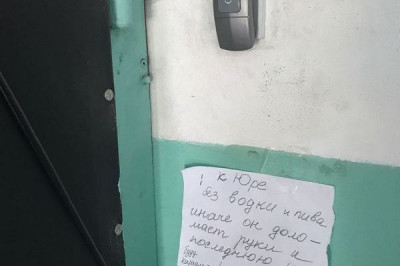 ! к Юре
без водки и пива
иначе он доло-
мает руки и
последнюю